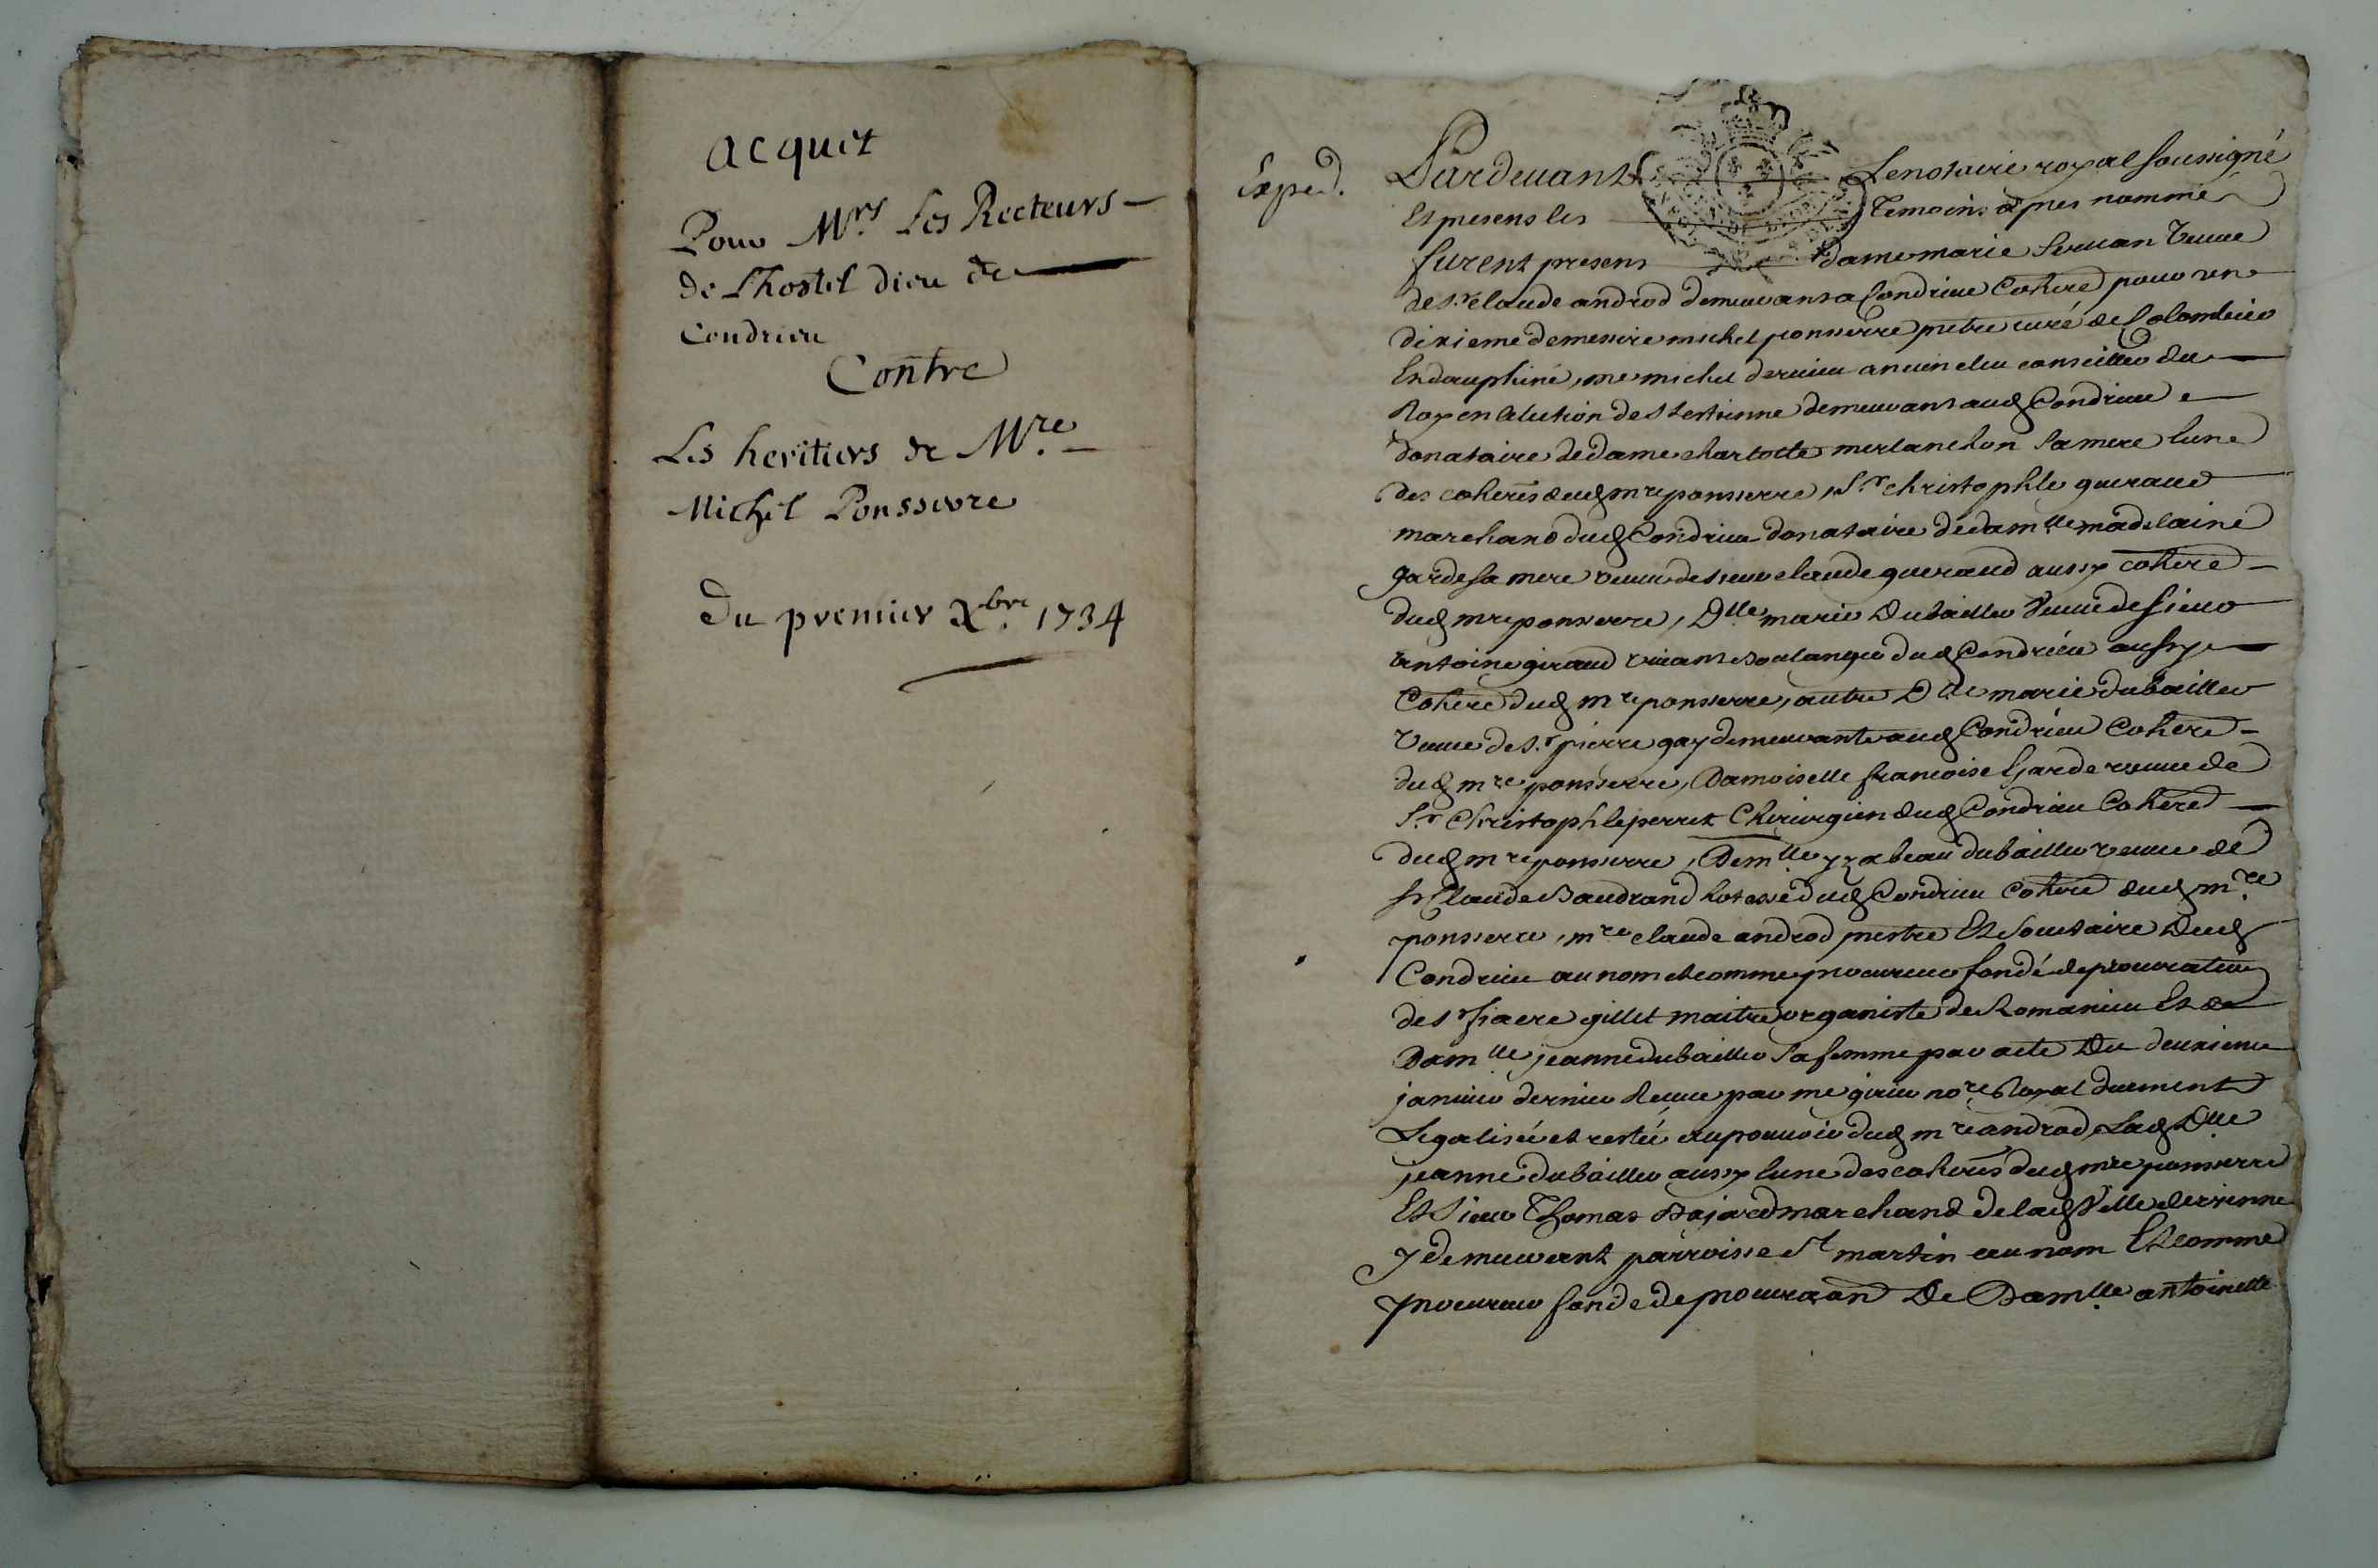 acquit
Pour Mrs. Les Recteurs
de Lhostel dieu de
Condrieu
Contre
Les heritiers de Mre.
Michel Ponsserre
Du premier Xbre. 1734
Exped.
Pardevant Le notaire royal soussigné
Et presens les temoins apres nommés
furent presens dame marie Servan veuve
de sr claude androd demeurant a Condrieu Cohered pour un
dixieme de messire michel ponsserre pretre curé de Colombier
En dauphiné, me michel dervieu ancien elu conseiller du
Roy en lelection de st estienne demeurant aud Condrieu
donataire de dame charlotte merlanchon sa mere lune
des coheres dud mre ponsserre, Sr. christophle gueraud
marchand dud Condrieu donataire de damlle madelaine
garde sa mere veuve de sieur claude gueraud aussy cohere
dud mre ponsserre, Dlle marie Dubailler veuve de sieur
antoine giraud vivant Boulanger dud Condrieu aussy
Cohere dud mre ponsserre, autre Dlle marie dubailler
veuve de sr. pierre gay demeurante aud Condrieu Cohere
dud mre ponsserre, Damoiselle francoise Garde veuve de
Sr. Christophle perret Chirurgien dud Condrieu Cohered
dud mre ponsserre, Demlle yzabeau dubailler veuve de
sr Claude Baudrand hotesse dud Condrieu Cohere dud mre.
ponsserre, mre claude androd prestre Et Societaire Dud
Condrieu au nom et comme procureur fondé de procuration
de sr fiacre gillet maitre organiste de Romanieu Et de
Damlle jeanne dubailler sa femme par acte Du deuxieme
janvier dernier Receue par me givier nore. Royal duement
Legalisée et restée au pouvoir dud mre androd, Lad Dlle
jeanne dubailler aussy lune des coheres dud mre ponsserre
Et Sieur Thomas Bajard marchand de lad Ville de vienne
y demeurant parroisse st martin au nom Et comme
procureur fondé de procuraon De Damlle antoinette